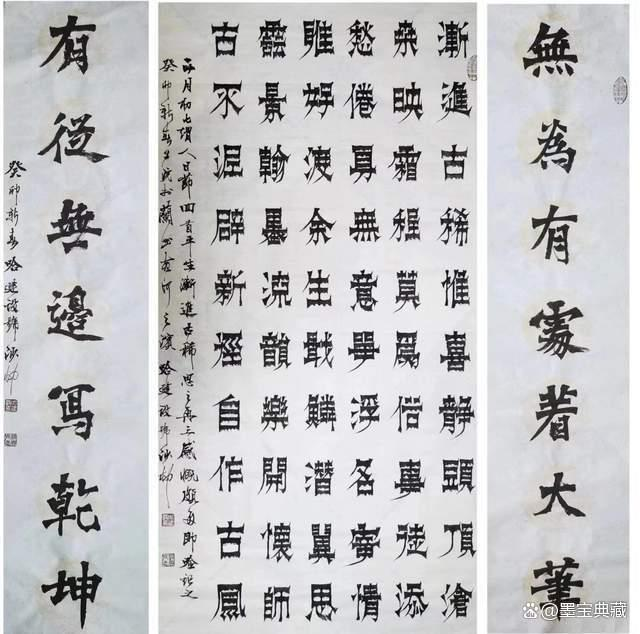 無為有處著大筆
漸進古稀惟喜靜頭頂滄
桑映霜程莫爲俗事徒添
愁倦尋無意爭浮名寧情
好余生戢鱗潛翼思
景翰墨流韻樂開懷師
古不泥辟新徑自作古風
正月初七谓人日節回首平生漸進古稀思之再三感慨頗多即吟記之
癸卯新春於蘭州黃河之濱路建設
有從無邊寫乾坤
癸卯新春路建設
墨宝典藏